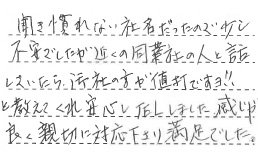 聞き慣れない社名だったので少し
不安でしたが近くの同業社の人と話
していたら、御社の方が値打ですヨ!!
と教えてくれ安心し任しました 感じが
良く親切に対応下さり満足でした。